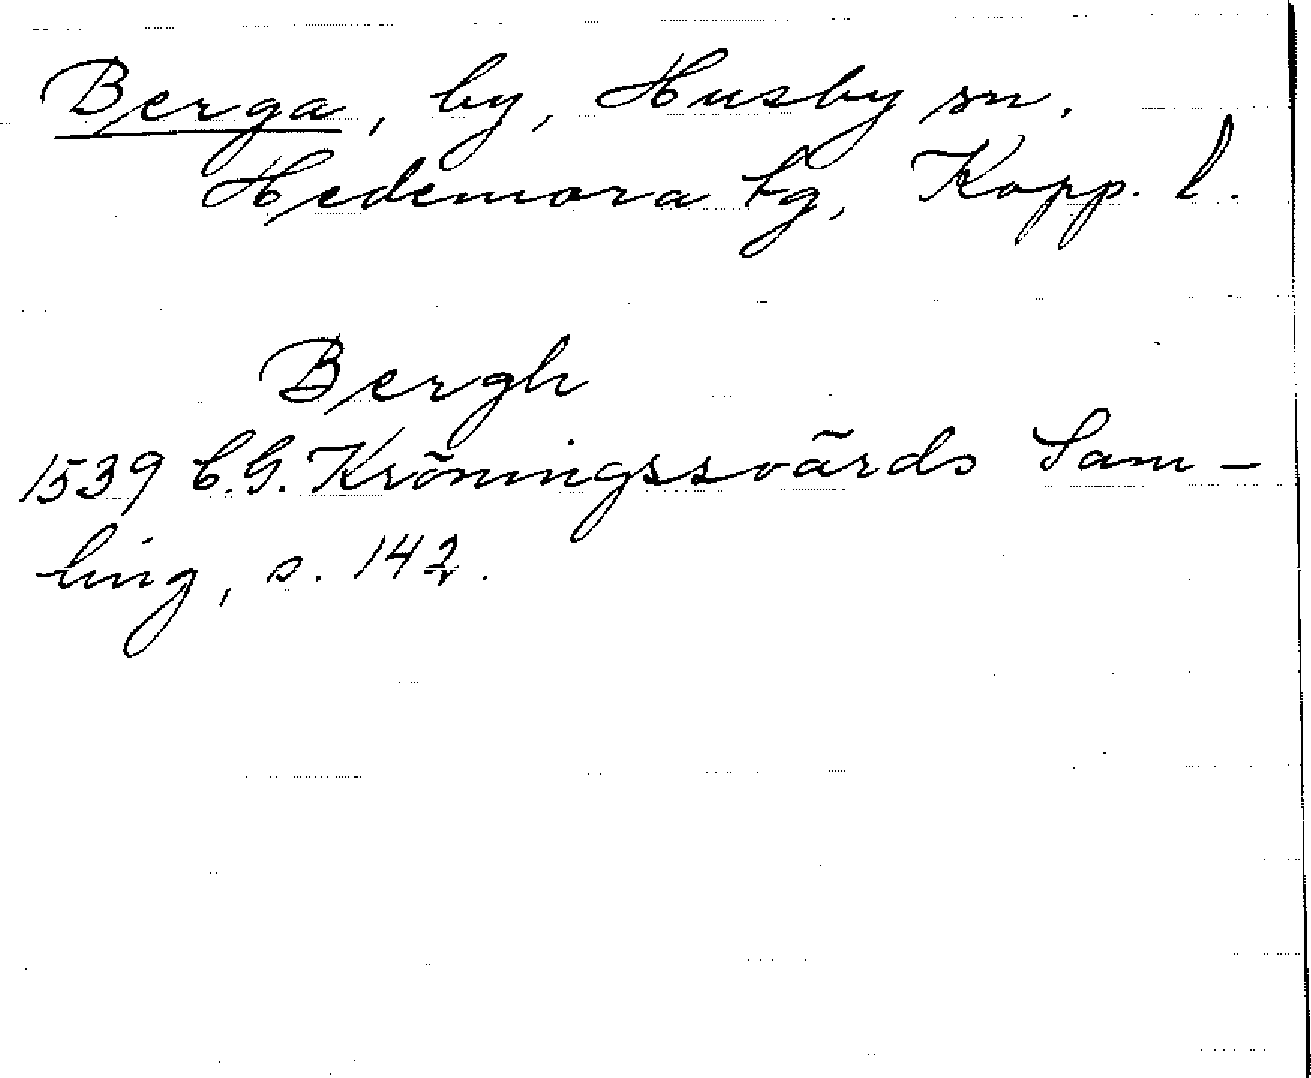 Berga, by, Husby sn.
Hedemora tg, Kopp. l.
Bergh
1539 C.G. Kröningssvärds Sam-
ling, s. 142.